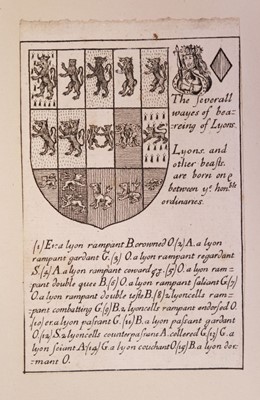 The severall
wayes of bea-
reing of Lyons.
Lyons, and
other beasts.
are born on &
between ye. honble
ordinaries.
(1) Er: a lyon rampant B. crowned O (2) A. a lyon
rampant gardant G. (3) O. a lyon rampant regardant
S. (4) A. a lyon rampant coward (5) O. a lyon ram=
pant double quee B. (6) O. a lyon rampant saliant G (7)
O. a lyon rampant double teste B. (8) 2 lyoncells ram=
pant combatting G. (9) B. 2 lyoncells rampant endorsed O.
(10) er: a lyon passant G. (11) B. a lyon passant gardant
O. (12) S. 2 lyoncells counterpassant A. collered G. (13) G. a
lyon seiant A (14) G. a lyon couchant O (15) B. a lyon dor=
mant O.